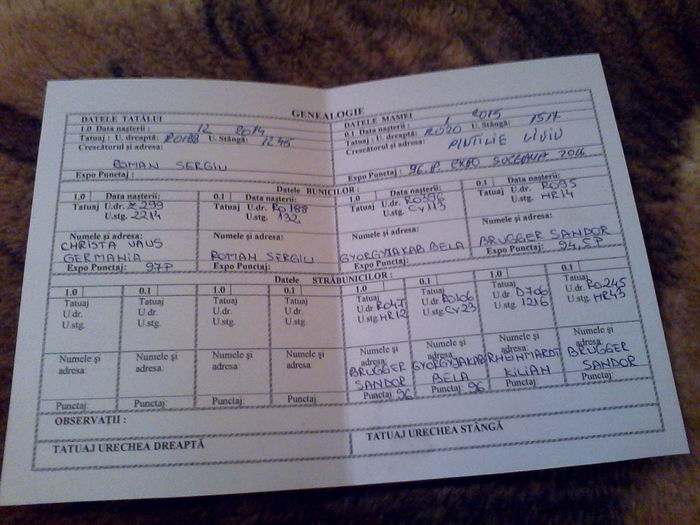 GENEALOGIE
DATELE TATĂLUI
1.0 Data nașterii : 12 2014
Tatuaj : U. dreaptă: RO188 U. Stângă: 1245
Crescătorul și adresa:
ROMAN SERGIU
Expo Punctaj :
DATELE MAMEI
0.1 Data nașterii : 1 2015
Tatuaj : U. dreaptă: RO20 U. Stângă: 1517
Crescătorul și adresa: PINTILIE LIVIU
Expo Punctaj : 96.P. EXPO SUCEAVA
Datele BUNICILOR :
1.0 Data nașterii:
Tatuaj U.dr. Z 299
U.stg. 2214
0.1 Data nașterii:
Tatuaj U.dr. RO 188
U.stg. 132
1.0 Data nașterii:
Tatuaj U.dr. RO396
U.stg. CV113
0.1 Data nașterii:
Tatuaj U.dr. RO95
U.stg. HR14
Numele și adresa:
CHRISTA VAUS
GERMANIA
Expo Punctaj: 97P
Numele și adresa:
ROMAN SERGIU
Expo Punctaj:
Numele și adresa:
GYORGYJAKAB BELA
Expo Punctaj:
Numele și adresa:
BRUGGER SANDOR
Expo Punctaj: 94,5P
Datele STRĂBUNICILOR :
1.0
Tatuaj
U.dr.
U.stg.
0.1
Tatuaj
U.dr.
U.stg.
1.0
Tatuaj
U.dr.
U.stg.
0.1
Tatuaj
U.dr.
U.stg.
1.0
Tatuaj
U.dr. RO47
U.stg. HR12
0.1
Tatuaj
U.dr. RO106
U.stg. CV23
1.0
Tatuaj
U.dr. D706
U.stg. 1216
0.1
Tatuaj
U.dr. RO245
U.stg. HR43
Numele și
adresa:
Punctaj:
Numele și
adresa:
Punctaj:
Numele și
adresa:
Punctaj:
Numele și
adresa:
Punctaj:
Numele și
adresa:
BRUGGER
SANDOR
Punctaj: 96
Numele și
adresa:
GYORGYJAKAB
BELA
Punctaj: 96
Numele și
adresa:
RHEINHARDT
KILIAN
Punctaj:
Numele și
adresa:
BRUGGER
SANDOR
Punctaj:
OBSERVAȚII :
TATUAJ URECHEA DREAPTĂ
TATUAJ URECHEA STÂNGĂ